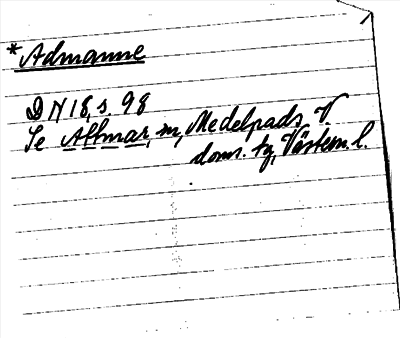 *Admanne
DN 18, s. 98
Se Altmar, m, Medelpads V
doms. tg, Västern.l.